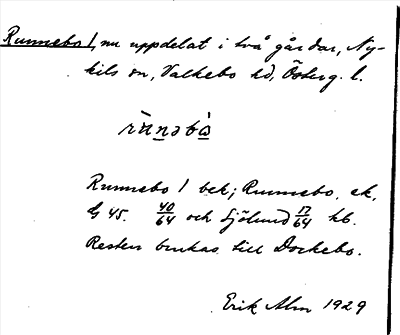 Runnebo 1, nu uppdelat i två gårdar, Ny-
kils sn, Valkebo hd, Österg. l.
rùnəbò
Runnebo 1 bet; Runnebo, ek,
G 45. 40/64 och Sjölund 17/64 kb.
Resten brukas till Dockebo.
Erik Alm 1929